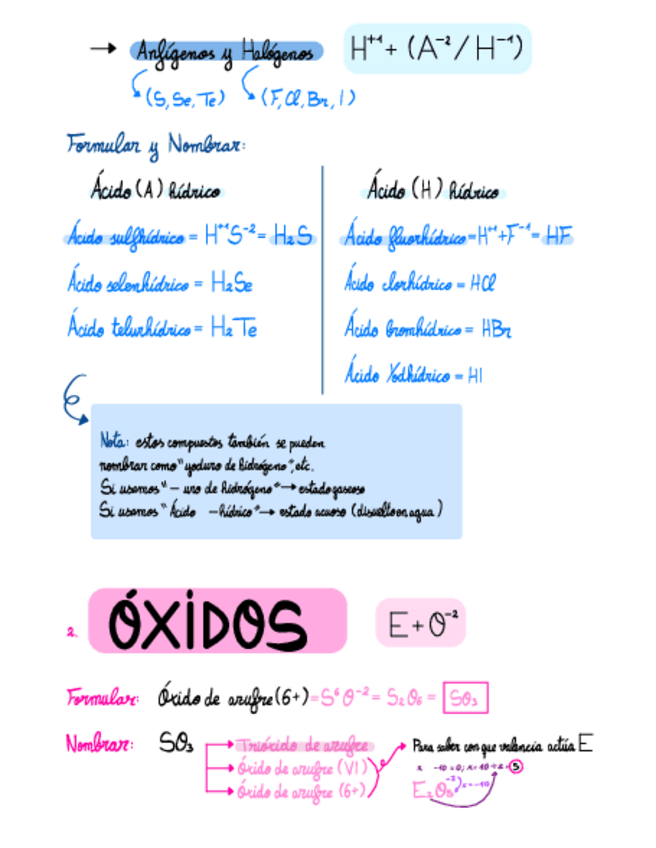 → Anfígenos y Halógenos H⁺¹ + (A⁻²/H⁻¹)
(S, Se, Te) (F, Cl, Br, I)
Formular y Nombrar:
Ácido (A) hídrico
Ácido sulfhídrico = H⁺¹S⁻² = H₂S
Ácido selenhídrico = H₂Se
Ácido telurhídrico = H₂Te
Ácido (H) hídrico
Ácido fluorhídrico = H⁺¹+F⁻¹ = HF
Ácido clorhídrico = HCl
Ácido bromhídrico = HBr
Ácido Yodhídrico = HI
Nota: estos compuestos también se pueden
nombrar como "yoduro de hidrógeno", etc.
Si usamos "– uro de hidrógeno" → estado gaseoso
Si usamos "Ácido –hídrico" → estado acuoso (disuelto en agua)
2. ÓXIDOS E + O⁻²
Formular: Óxido de azufre (6+) = S⁶O⁻² = S₂O₆ = SO₃
Nombrar: SO₃
Trióxido de azufre
Óxido de azufre (VI)
Óxido de azufre (6+)
Para saber con que valencia actúa E
E₂O₅